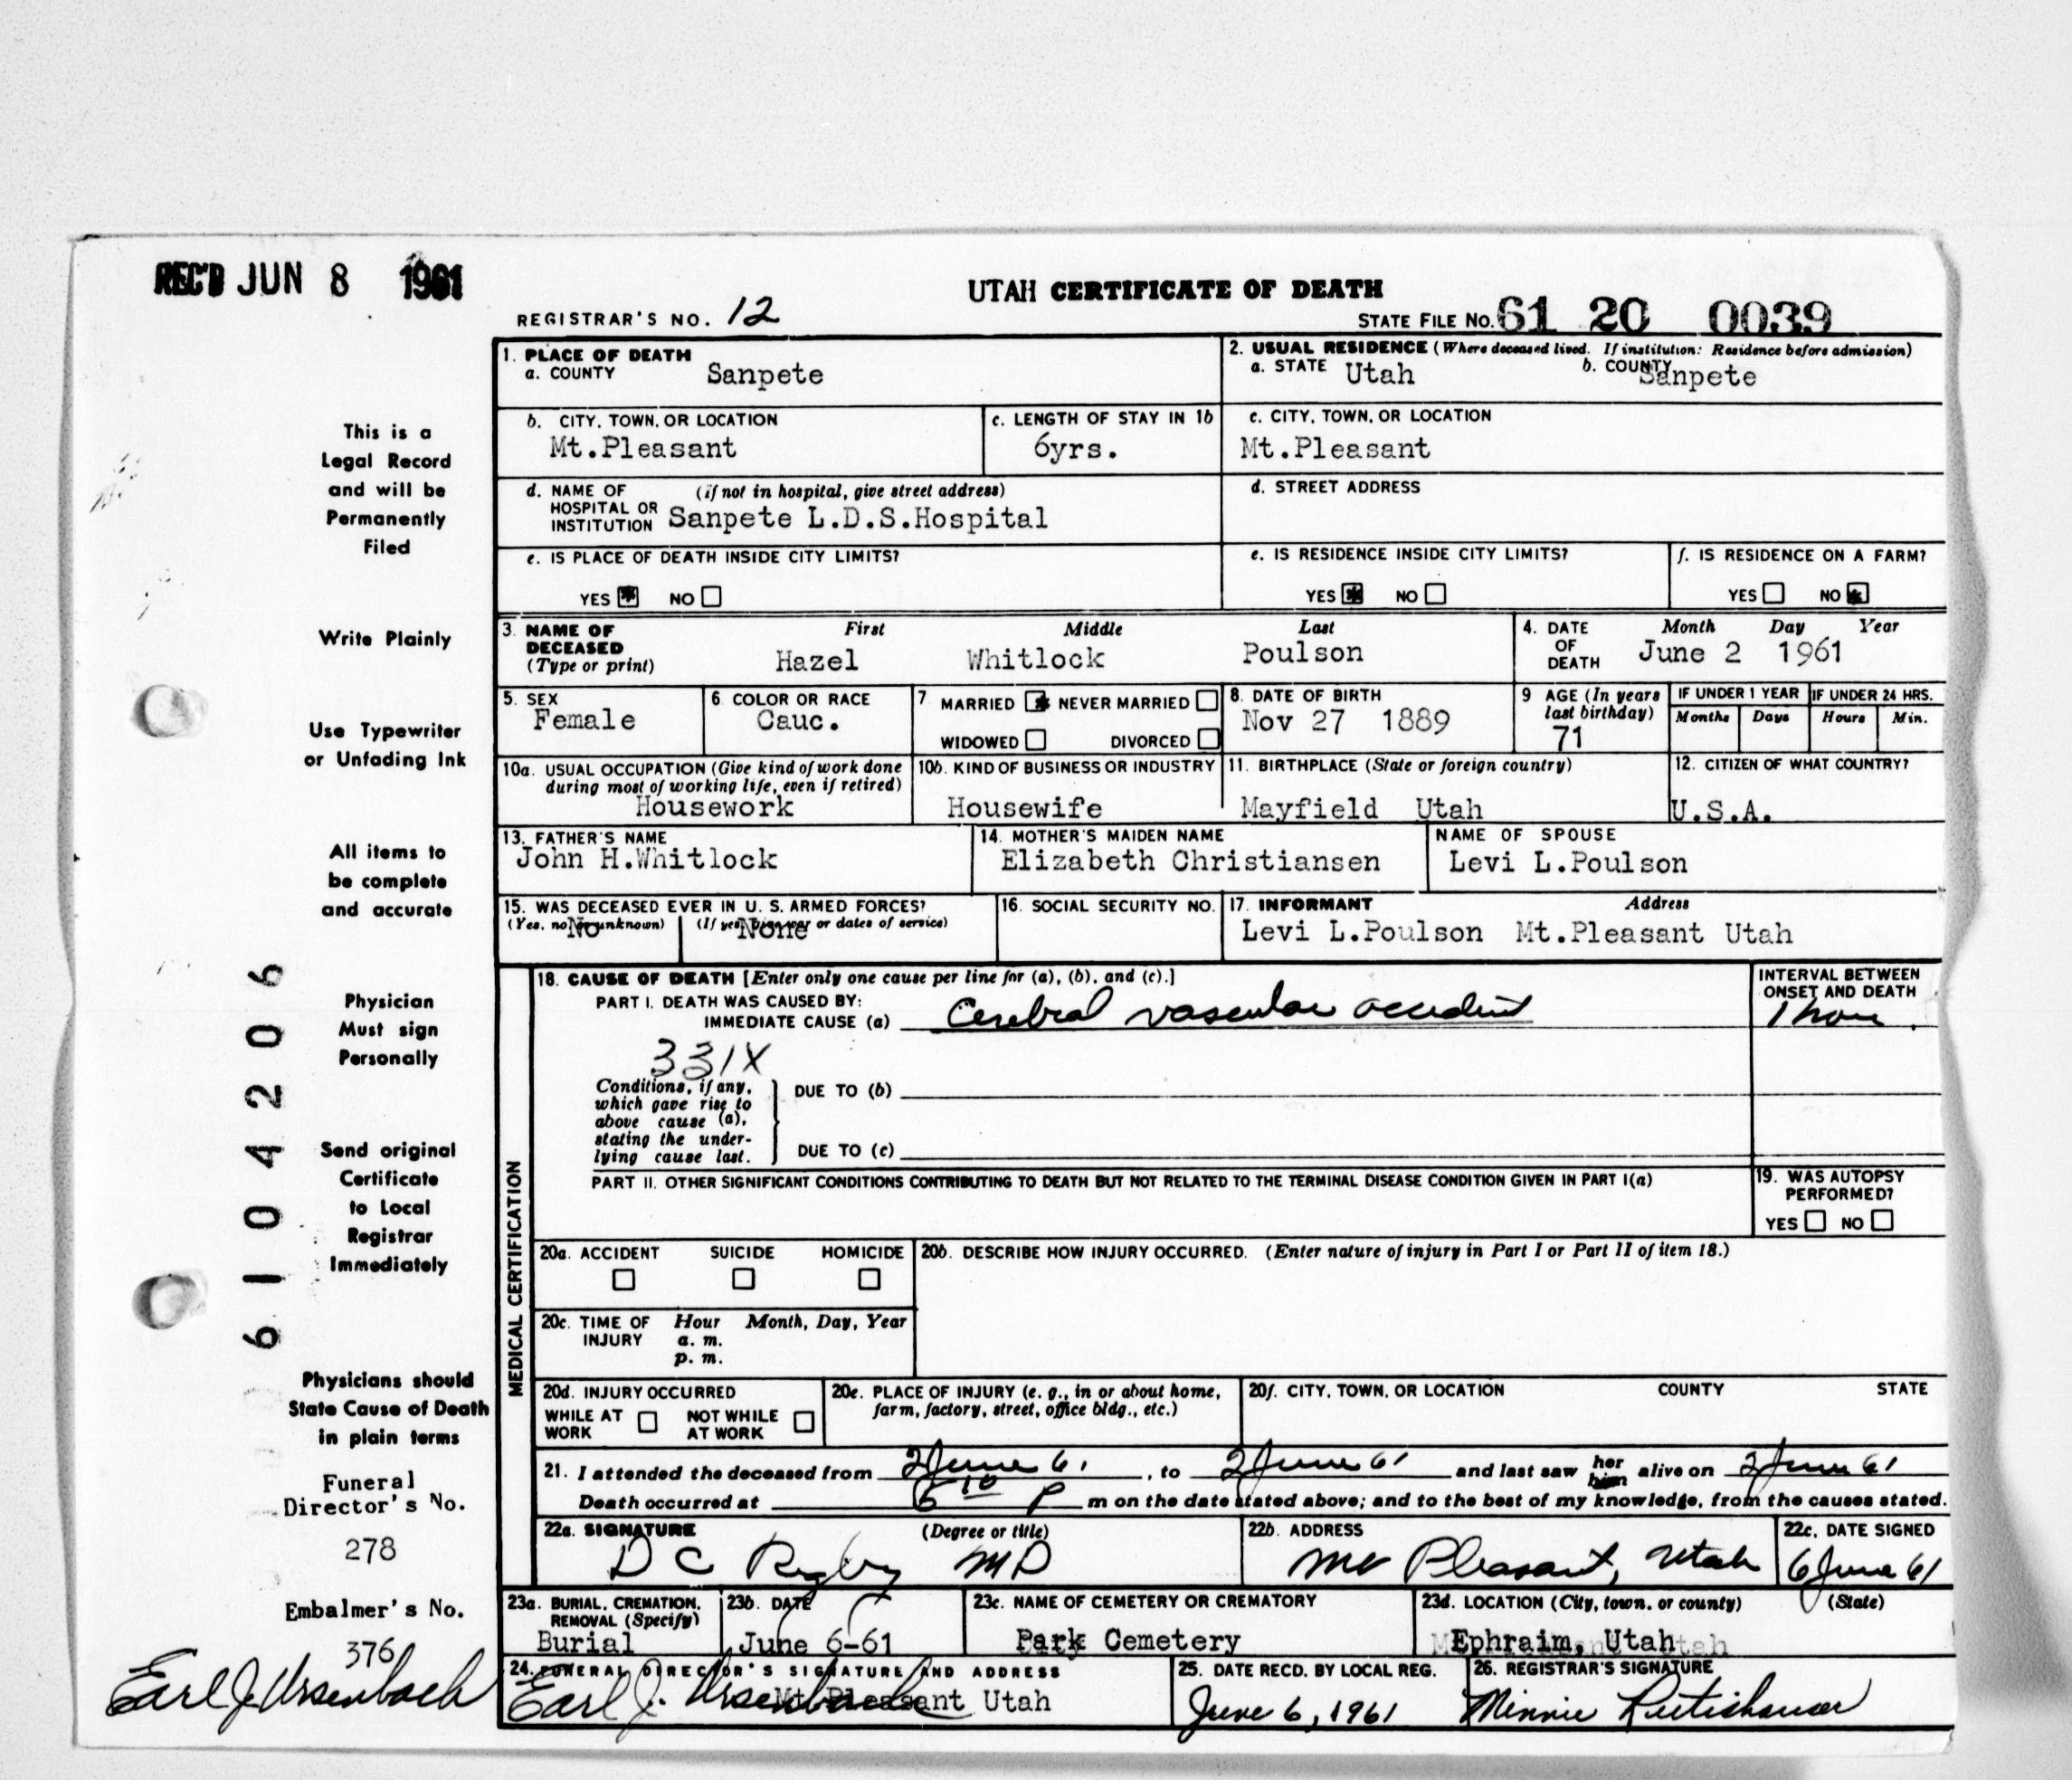 REC'D JUN 8 1961
UTAH CERTIFICATE OF DEATH
REGISTRAR'S NO. 12
STATE FILE NO. 61 20 0039
1. PLACE OF DEATH
a. COUNTY Sanpete
2. USUAL RESIDENCE (Where deceased lived. If institution: Residence before admission)
a. STATE Utah b. COUNTY Sanpete
b. CITY, TOWN, OR LOCATION
Mt.Pleasant
c. LENGTH OF STAY IN 1b
6yrs.
c. CITY, TOWN, OR LOCATION
Mt.Pleasant
d. NAME OF HOSPITAL OR INSTITUTION (if not in hospital, give street address)
Sanpete L.D.S.Hospital
d. STREET ADDRESS
e. IS PLACE OF DEATH INSIDE CITY LIMITS?
YES NO
e. IS RESIDENCE INSIDE CITY LIMITS?
YES NO
f. IS RESIDENCE ON A FARM?
YES NO
3. NAME OF DECEASED (Type or print)
First Middle Last
Hazel Whitlock Poulson
4. DATE OF DEATH
Month Day Year
June 2 1961
5. SEX
Female
6. COLOR OR RACE
Cauc.
7 MARRIED NEVER MARRIED
WIDOWED DIVORCED
8. DATE OF BIRTH
Nov 27 1889
9 AGE (In years last birthday)
71
IF UNDER 1 YEAR
Months Days
IF UNDER 24 HRS.
Hours Min.
10a. USUAL OCCUPATION (Give kind of work done during most of working life, even if retired)
Housework
10b. KIND OF BUSINESS OR INDUSTRY
Housewife
11. BIRTHPLACE (State or foreign country)
Mayfield Utah
12. CITIZEN OF WHAT COUNTRY?
U.S.A.
13. FATHER'S NAME
John H.Whitlock
14. MOTHER'S MAIDEN NAME
Elizabeth Christiansen
NAME OF SPOUSE
Levi L.Poulson
15. WAS DECEASED EVER IN U. S. ARMED FORCES?
(Yes, no, or unknown) (If yes, give war or dates of service)
No None
16. SOCIAL SECURITY NO.
17. INFORMANT Address
Levi L.Poulson Mt.Pleasant Utah
MEDICAL CERTIFICATION
18. CAUSE OF DEATH [Enter only one cause per line for (a), (b), and (c).]
PART I. DEATH WAS CAUSED BY:
IMMEDIATE CAUSE (a) Cerebral vascular accident
INTERVAL BETWEEN ONSET AND DEATH
1 hour
331X
Conditions, if any, which gave rise to above cause (a), stating the underlying cause last.
DUE TO (b)
DUE TO (c)
PART II. OTHER SIGNIFICANT CONDITIONS CONTRIBUTING TO DEATH BUT NOT RELATED TO THE TERMINAL DISEASE CONDITION GIVEN IN PART I(a)
19. WAS AUTOPSY PERFORMED?
YES NO
20a. ACCIDENT SUICIDE HOMICIDE
20b. DESCRIBE HOW INJURY OCCURRED. (Enter nature of injury in Part I or Part II of item 18.)
20c. TIME OF INJURY Hour Month, Day, Year
a. m.
p. m.
20d. INJURY OCCURRED
WHILE AT WORK NOT WHILE AT WORK
20e. PLACE OF INJURY (e. g., in or about home, farm, factory, street, office bldg., etc.)
20f. CITY, TOWN, OR LOCATION COUNTY STATE
21. I attended the deceased from 2 June 61, to 2 June 61 and last saw her him alive on 2 June 61
Death occurred at 6 10 P m on the date stated above; and to the best of my knowledge, from the causes stated.
22a. SIGNATURE (Degree or title)
D C Rigby MD
22b. ADDRESS
Mt Pleasant, Utah
22c. DATE SIGNED
6 June 61
23a. BURIAL, CREMATION, REMOVAL (Specify)
Burial
23b. DATE
June 6-61
23c. NAME OF CEMETERY OR CREMATORY
Park Cemetery
23d. LOCATION (City, town, or county) (State)
Ephraim, Utah
24. FUNERAL DIRECTOR'S SIGNATURE AND ADDRESS
Earl J. Ursenbach Mt.Pleasant Utah
25. DATE RECD. BY LOCAL REG.
June 6, 1961
26. REGISTRAR'S SIGNATURE
Minnie Rutishauser
This is a
Legal Record
and will be
Permanently
Filed
Write Plainly
Use Typewriter
or Unfading Ink
All items to
be complete
and accurate
Physician
Must sign
Personally
Send original
Certificate
to Local
Registrar
Immediately
Physicians should
State Cause of Death
in plain terms
Funeral
Director's No.
278
Embalmer's No.
376
Earl J Ursenbach
6104206